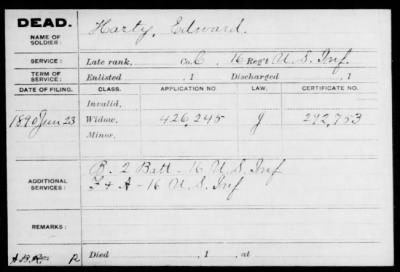 DEAD.
NAME OF SOLDIER: Harty, Edward.
SERVICE: Late rank, Co. C, 16 Reg't U. S. Inf.
TERM OF SERVICE: Enlisted , 1 Discharged , 1
DATE OF FILING. CLASS. APPLICATION NO. LAW. CERTIFICATE NO.
Invalid,
1890 Jun 23 Widow, 426,245 J 292,753
Minor,
ADDITIONAL SERVICES: B. 2 Batt - 16 U. S. Inf
F & A - 16 U. S. Inf
REMARKS:
Died , 1 , at